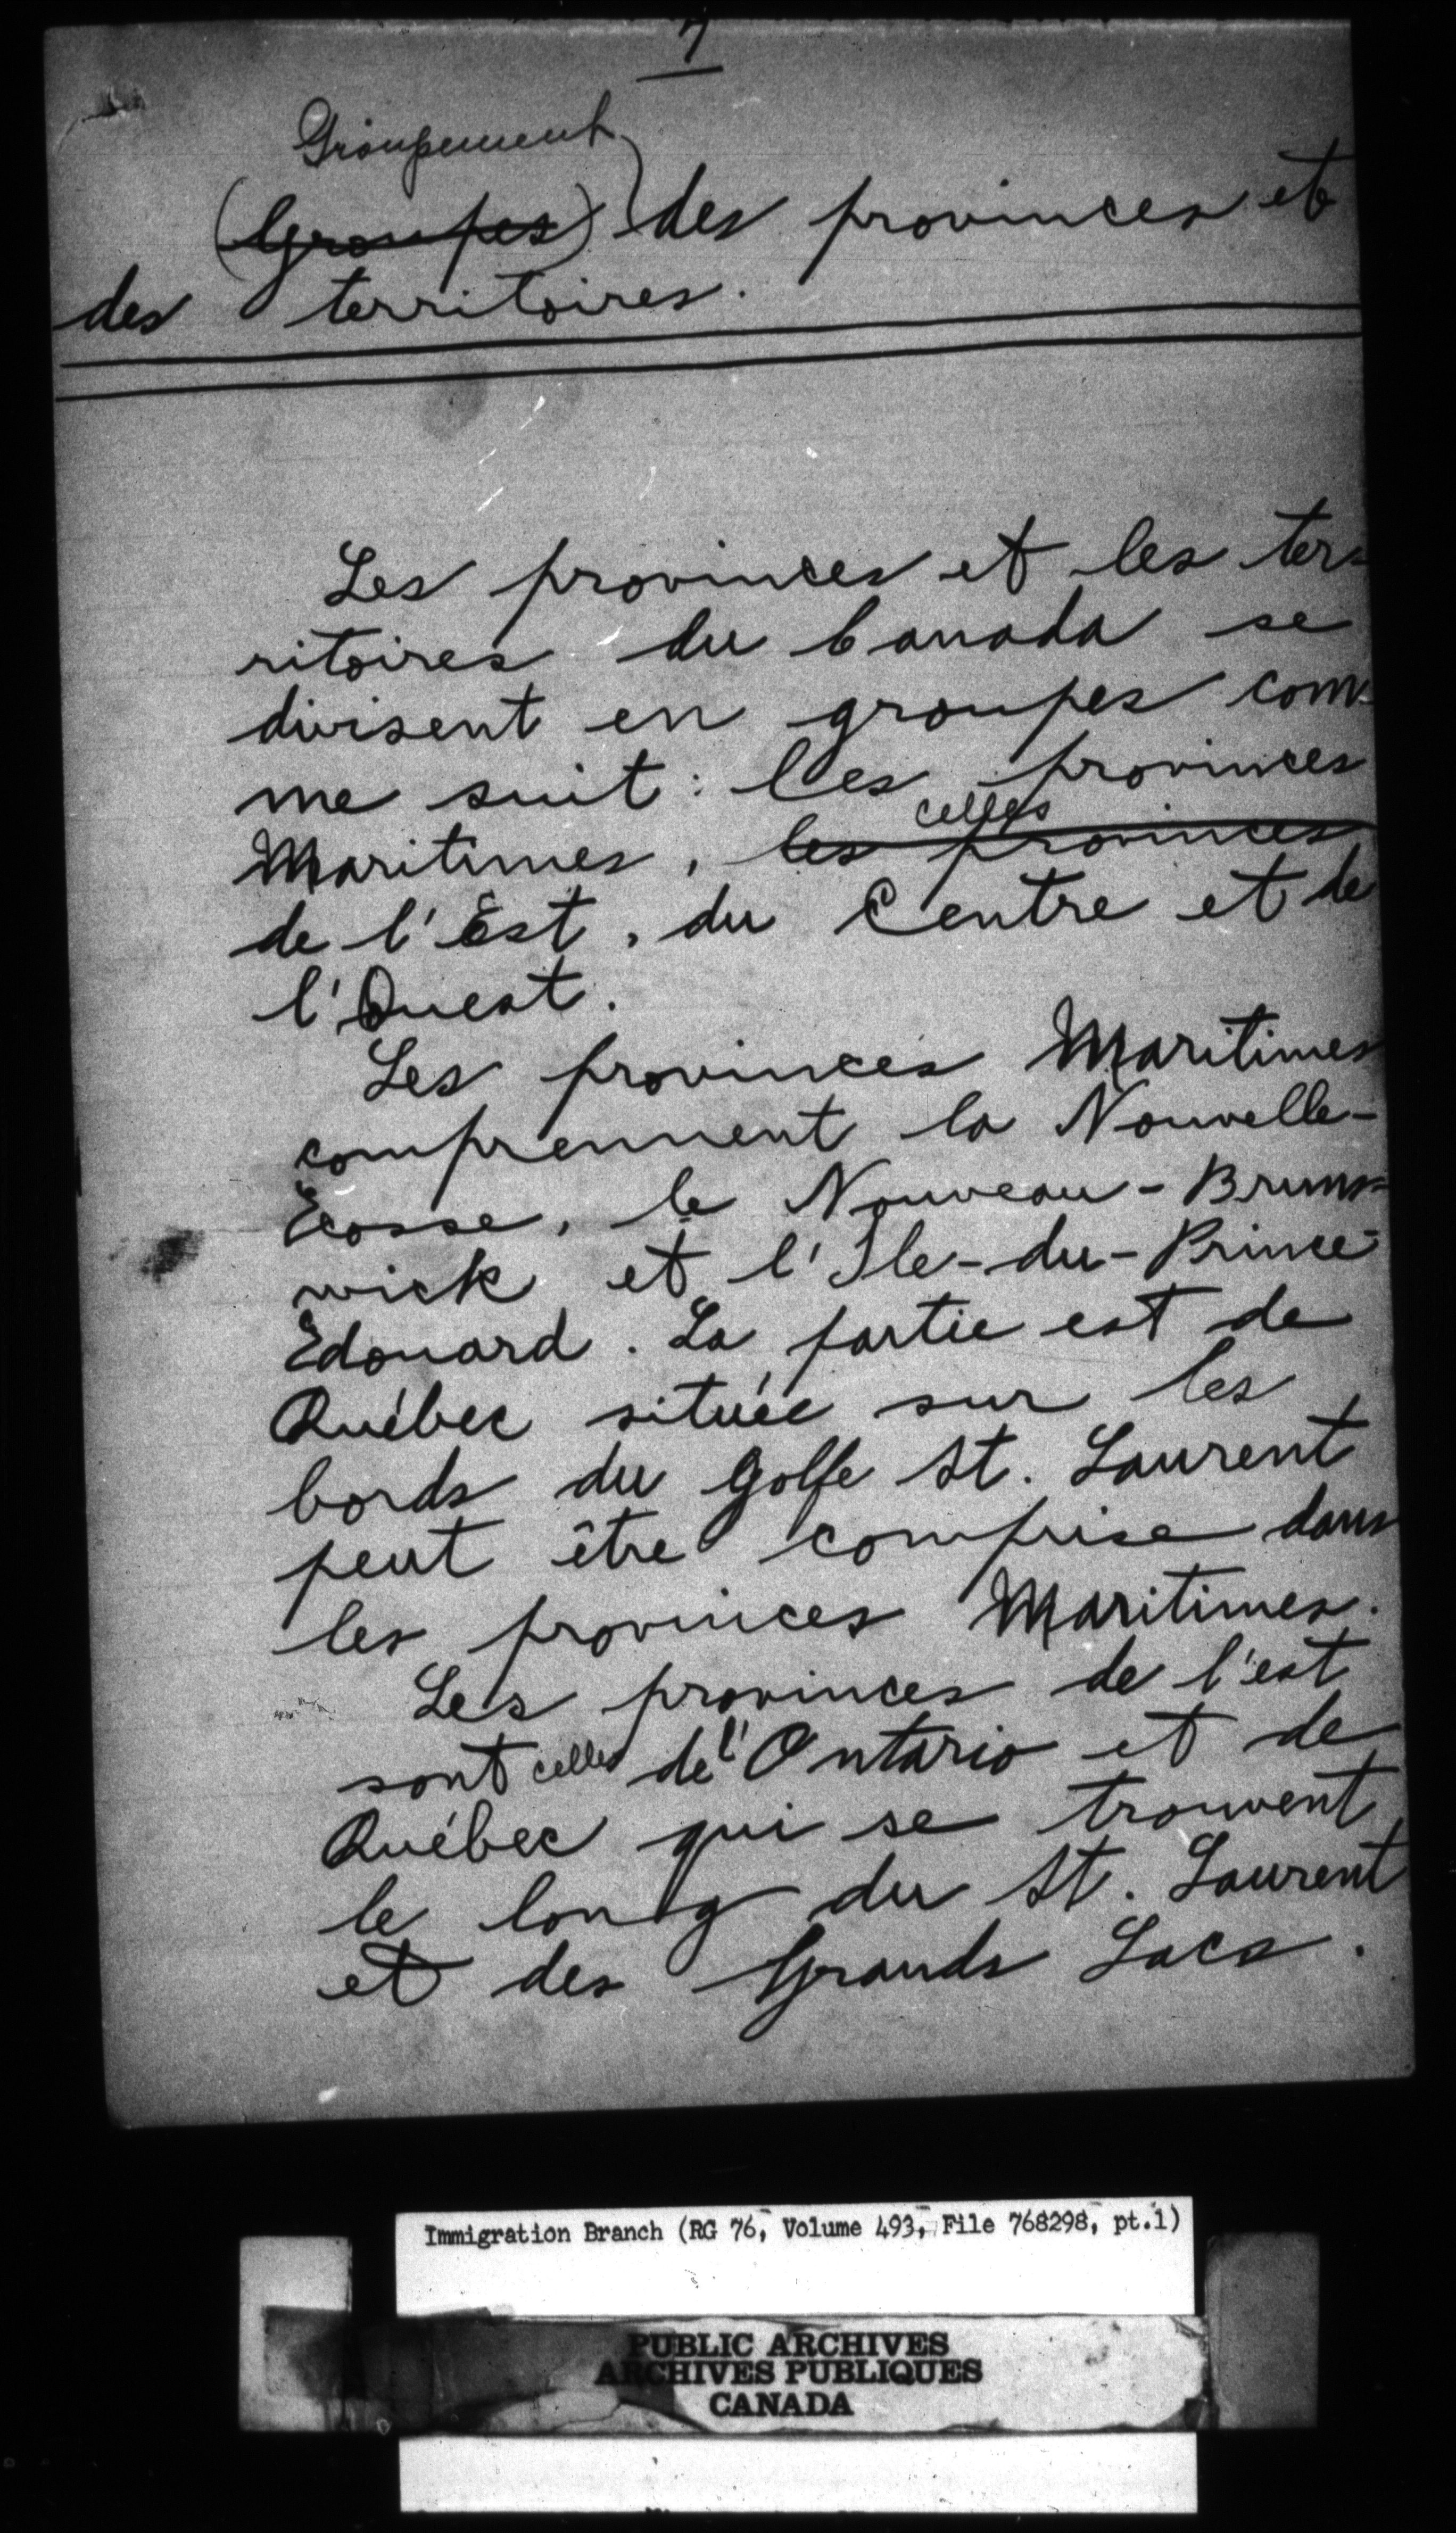 7
Groupement
(Groupes) des provinces et
des territoires.
Les provinces et les ter-
ritoires du Canada se
divisent en groupes com-
me suit : les provinces
celles
Maritimes, les provinces
de l'Est, du Centre et de
l'Ouest.
Les provinces Maritimes
comprennent la Nouvelle-
Ecosse, le Nouveau-Bruns-
wick et l'Ile-du-Prince-
Edouard. La partie est de
Québec située sur les
bords du Golfe St. Laurent
peut être comprise dans
les provinces Maritimes.
Les provinces de l'est
sont celles de l'Ontario et de
Québec qui se trouvent
le long du St. Laurent
et des Grands Lacs.
Immigration Branch (RG 76, Volume 493, File 768298, pt.1)
PUBLIC ARCHIVES
ARCHIVES PUBLIQUES
CANADA